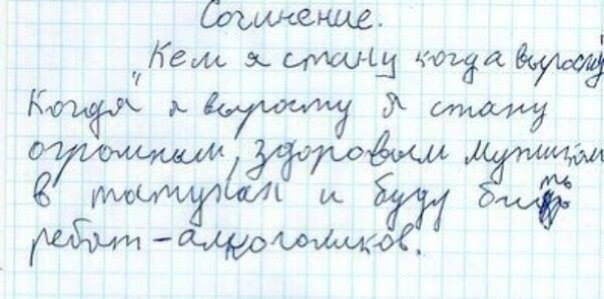 Сочинение.
"Кем я стану когда вырасту"
Когда я вырасту я стану
огромным, здоровым мужиком
в татухах и буду бить
ребят-алкоголиков.